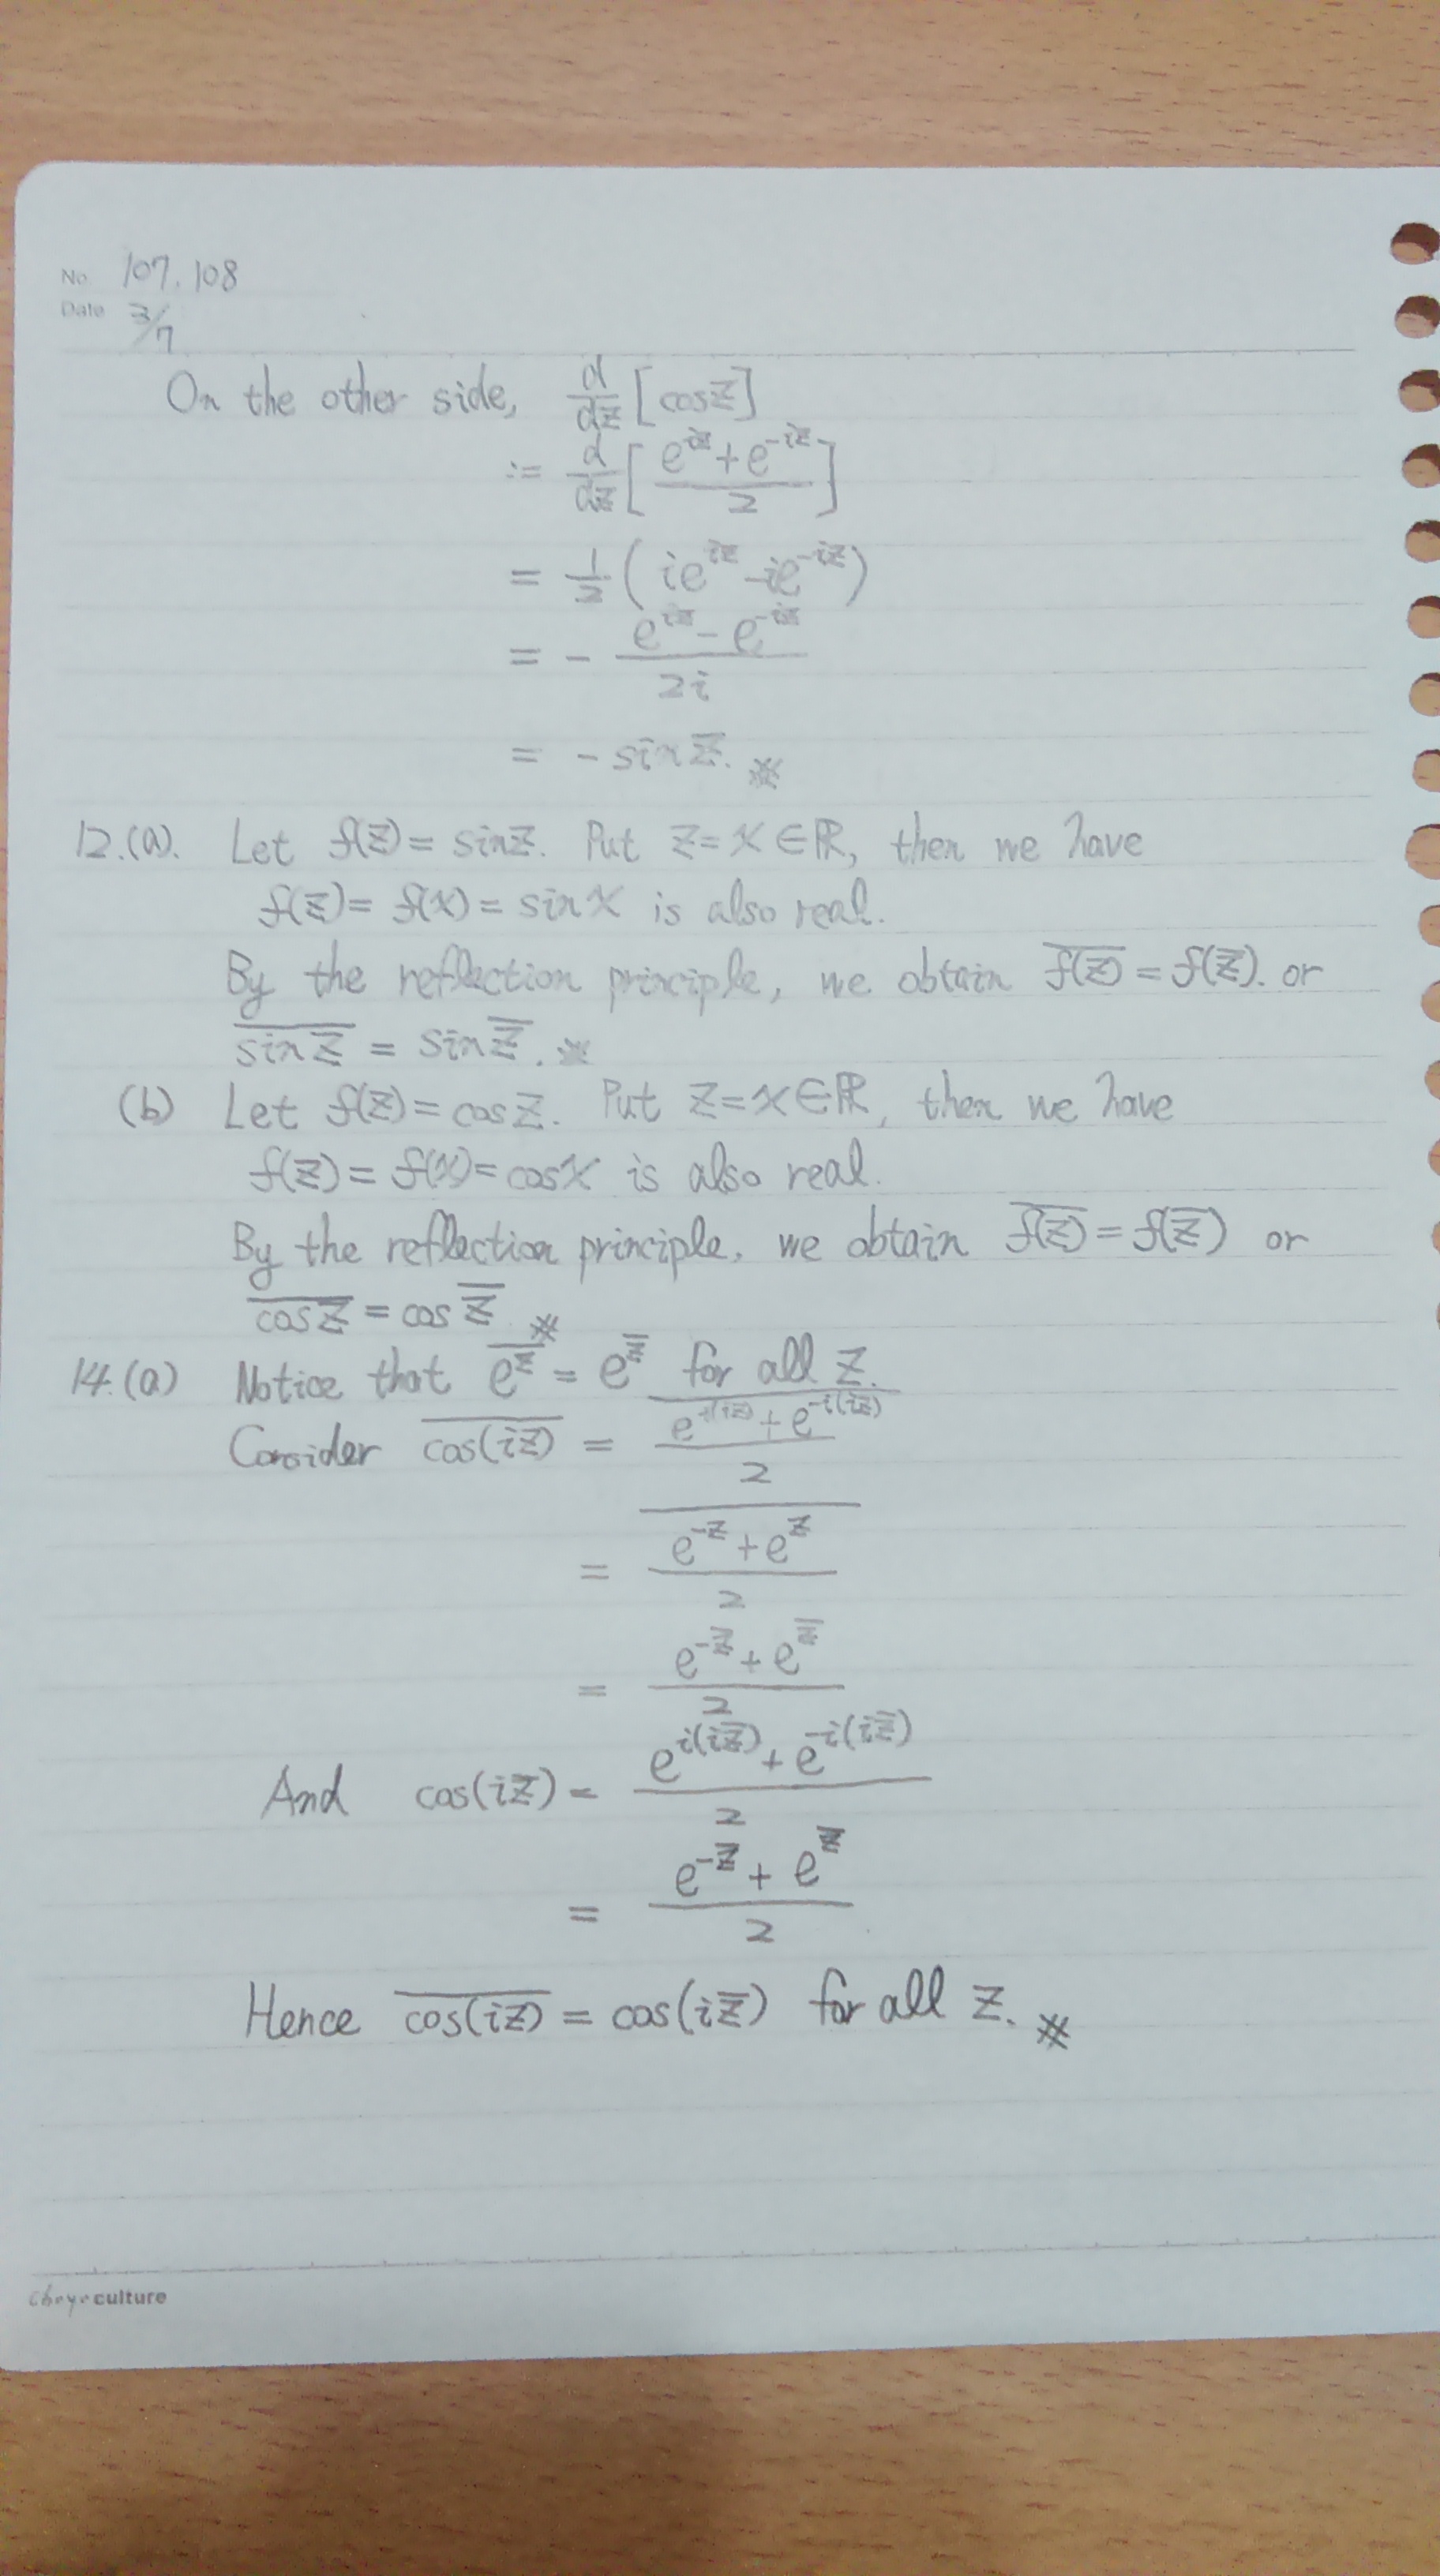 No. 107.108
Date 3/7
On the other side, d/dz [cosz]
:= d/dz [(e^{iz}+e^{-iz})/2]
= 1/2 (ie^{iz} - ie^{-iz})
= - (e^{iz} - e^{-iz})/2i
= - sinz. ※
12.(a). Let f(z) = sinz. Put z = x ∈ ℝ, then we have
f(z) = f(x) = sinx is also real.
By the reflection principle, we obtain \overline{f(z)} = f(\overline{z}). or
\overline{sinz} = sin\overline{z}. ※
(b) Let f(z) = cosz. Put z = x ∈ ℝ, then we have
f(z) = f(x) = cosx is also real.
By the reflection principle, we obtain \overline{f(z)} = f(\overline{z}) or
\overline{cosz} = cos\overline{z}. ※
14.(a) Notice that \overline{e^{z}} = e^{\overline{z}} for all z.
Consider \overline{cos(iz)} = \overline{(e^{i(iz)} + e^{-i(iz)})/2}
= \overline{(e^{-z} + e^{z})/2}
= (e^{-\overline{z}} + e^{\overline{z}})/2
And cos(i\overline{z}) = (e^{i(i\overline{z})} + e^{-i(i\overline{z})})/2
= (e^{-\overline{z}} + e^{\overline{z}})/2
Hence \overline{cos(iz)} = cos(i\overline{z}) for all z. ※
culture